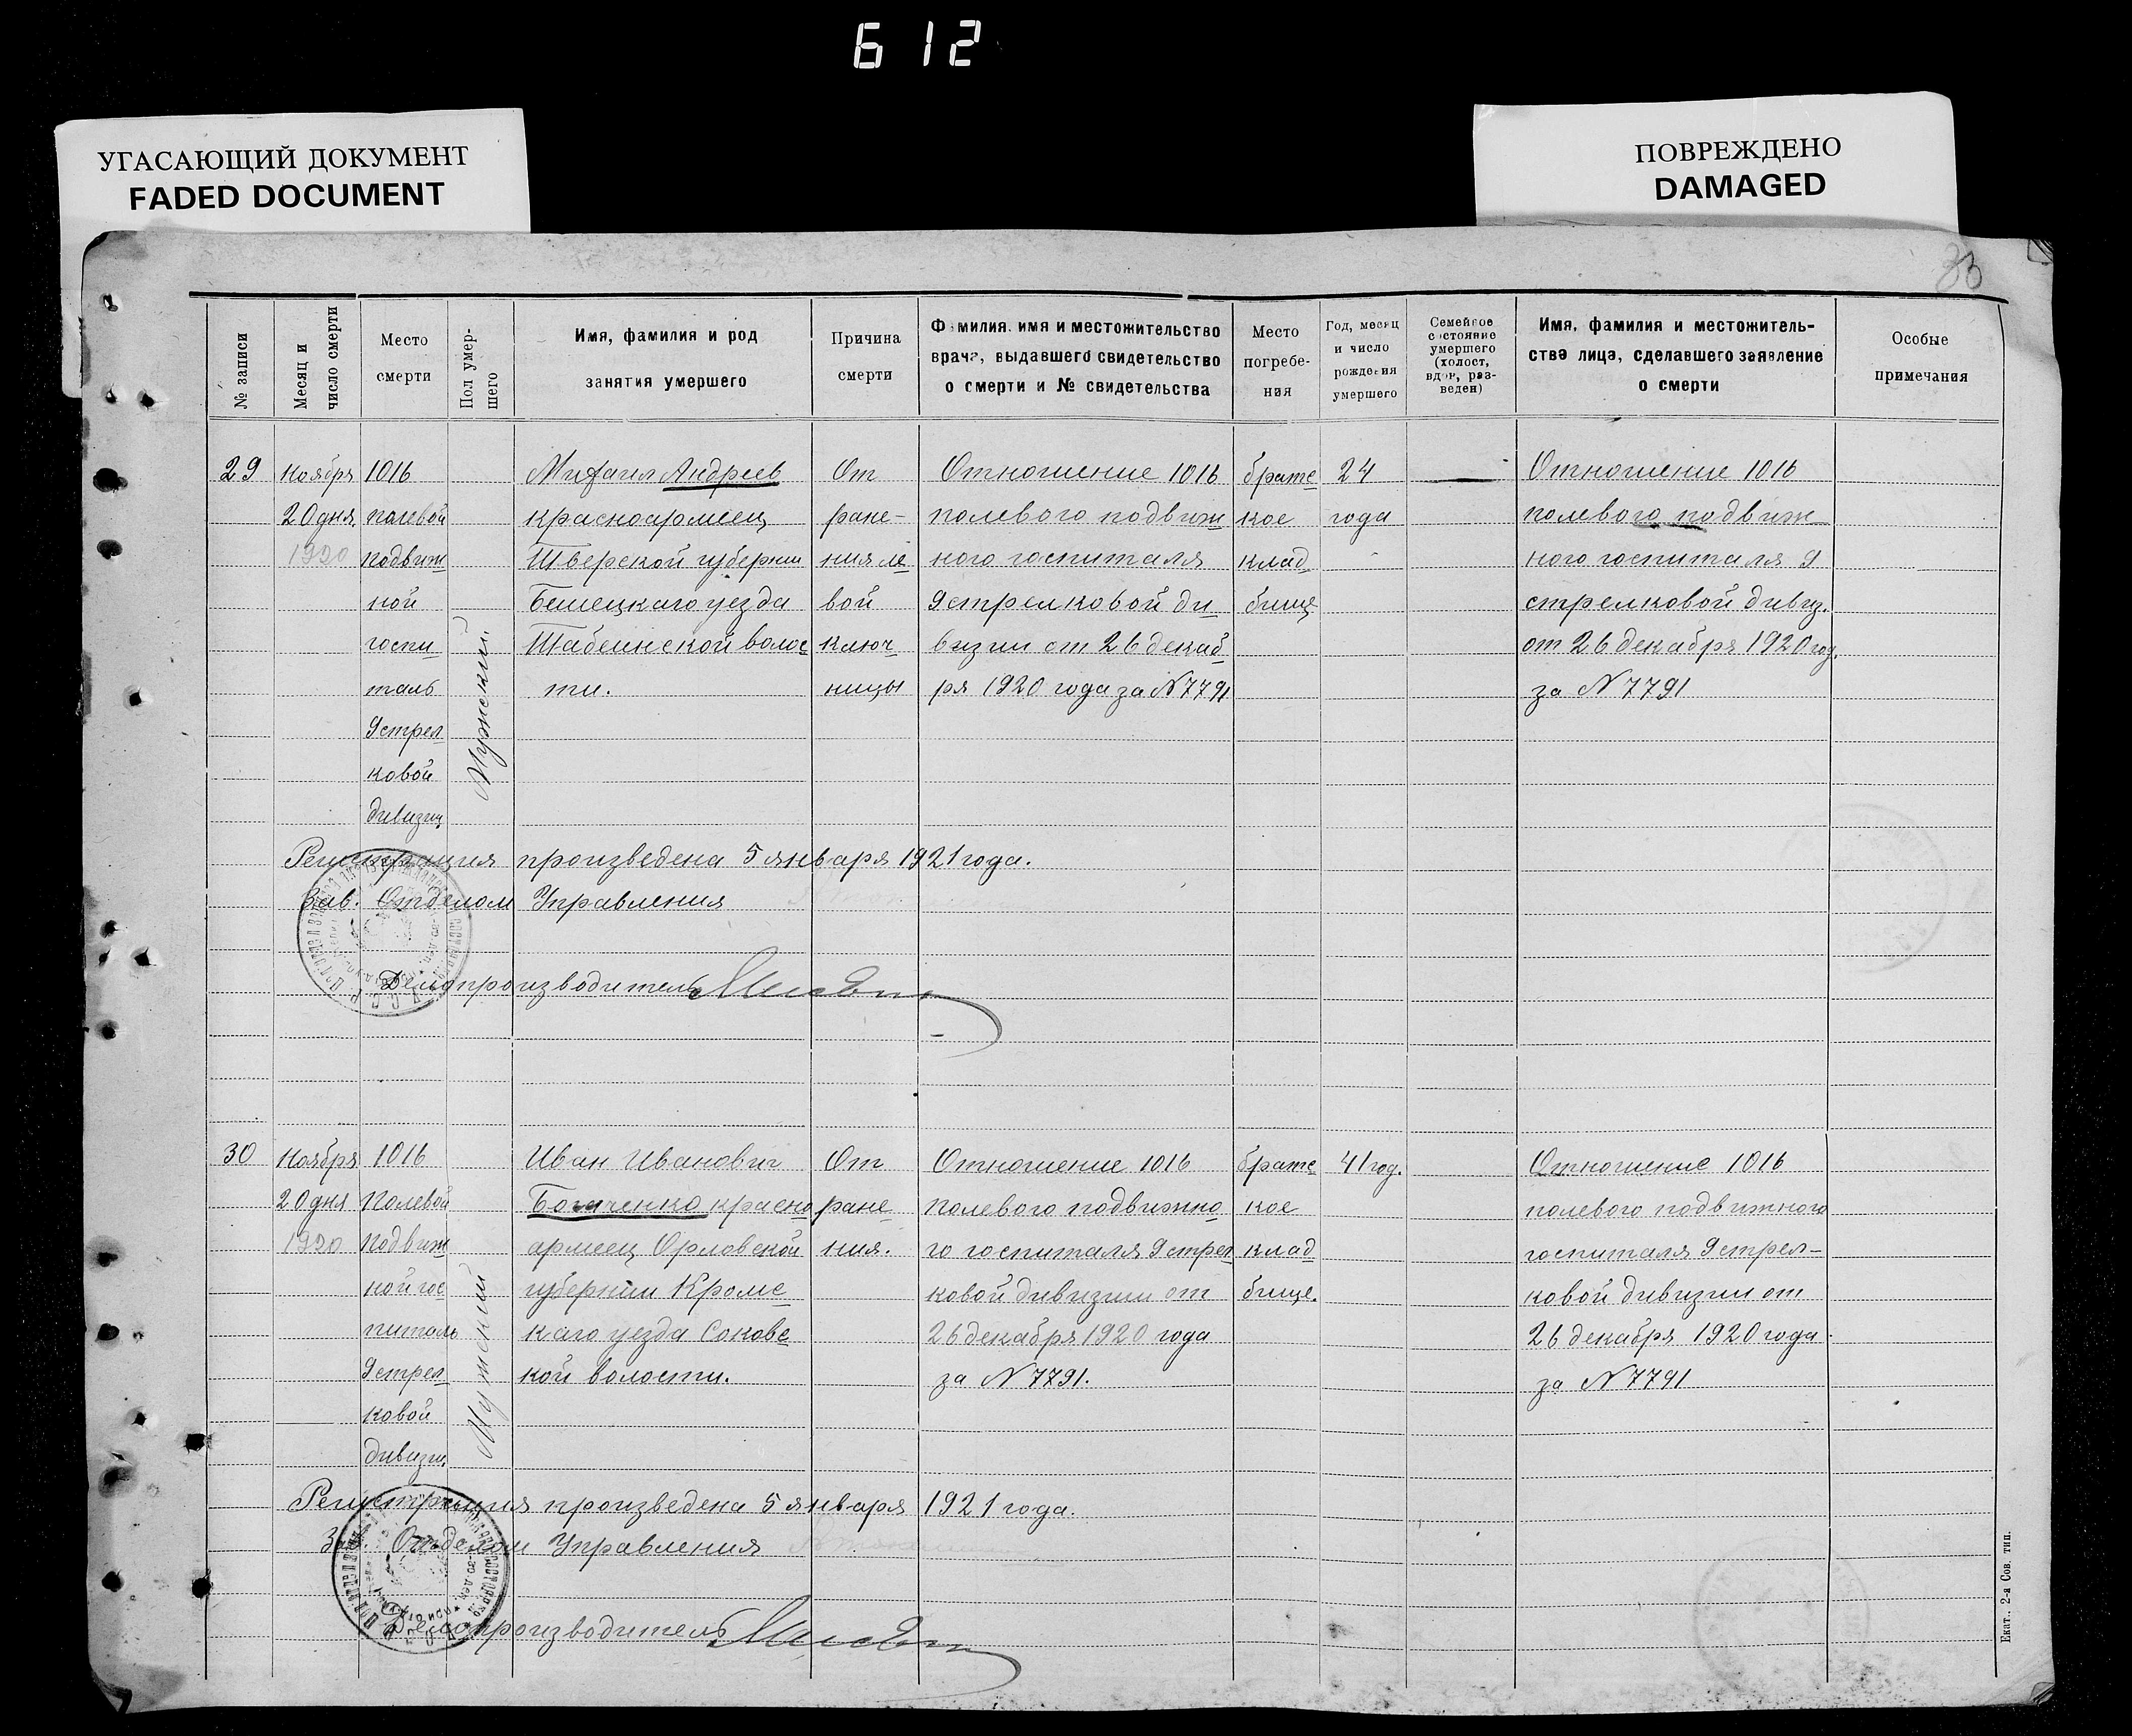 612
УГАСАЮЩИЙ ДОКУМЕНТ
FADED DOCUMENT
ПОВРЕЖДЕНО
DAMAGED
33
№ записи
Месяц и
число смерти
Место
смерти
Пол умер-
шего
Имя, фамилия и род
занятия умершего
Причина
смерти
Фамилия, имя и местожительство
врача, выдавшего свидетельство
о смерти и № свидетельства
Место
погребе-
ния
Год, месяц
и число
рождения
умершего
Семейное
состояние
умершего
(холост,
вдов, раз-
веден)
Имя, фамилия и местожитель-
ство лица, сделавшего заявление
о смерти
Особые
примечания
29
ноября
20 дня
1920
1016
полевой
подвиж
ной
госпи
таль
9 стрел
ковой
дивизии
Мужский.
Михаил Андреев
красноармеец
Тверской губернии
Бешецкаго уезда
волос
ти.
От
ране-
ния ле
вой
ключ
ницы
Отношение 1016
полевого подвиж
ного госпиталя
9 стрелковой ди
визии от 26 декаб
ря 1920 года за N 7791
братс
кое
клад
бище
24
года
—
Отношение 1016
полевого подвиж
ного госпиталя 9
стрелковой дивиз.
от 26 декабря 1920 год.
за N 7791
Регистрация произведена 5 января 1921 года.
Зав. Отделом Управления
Делопроизводитель
30
Ноября
20 дня
1920
1016
Полевой
подвиж
ной гос
питаль
9 стрел
ковой
дивизии
Мужский
Иван Иванович
красно
армеец Орловской
губернии Кромс
каго уезда
кой волости.
От
ране
ния.
Отношение 1016
полевого подвижно
го госпиталя 9 стрел
ковой дивизии от
26 декабря 1920 года
за N 7791.
братс
кое
клад
бище.
41 год.
Отношение 1016
полевого подвижного
госпиталя 9 стрел-
ковой дивизии от
26 декабря 1920 года
за N 7791
Регистрация произведена 5 января 1921 года.
Зав. Отделом Управления
Делопроизводитель
Екат., 2-я Сов. тип.